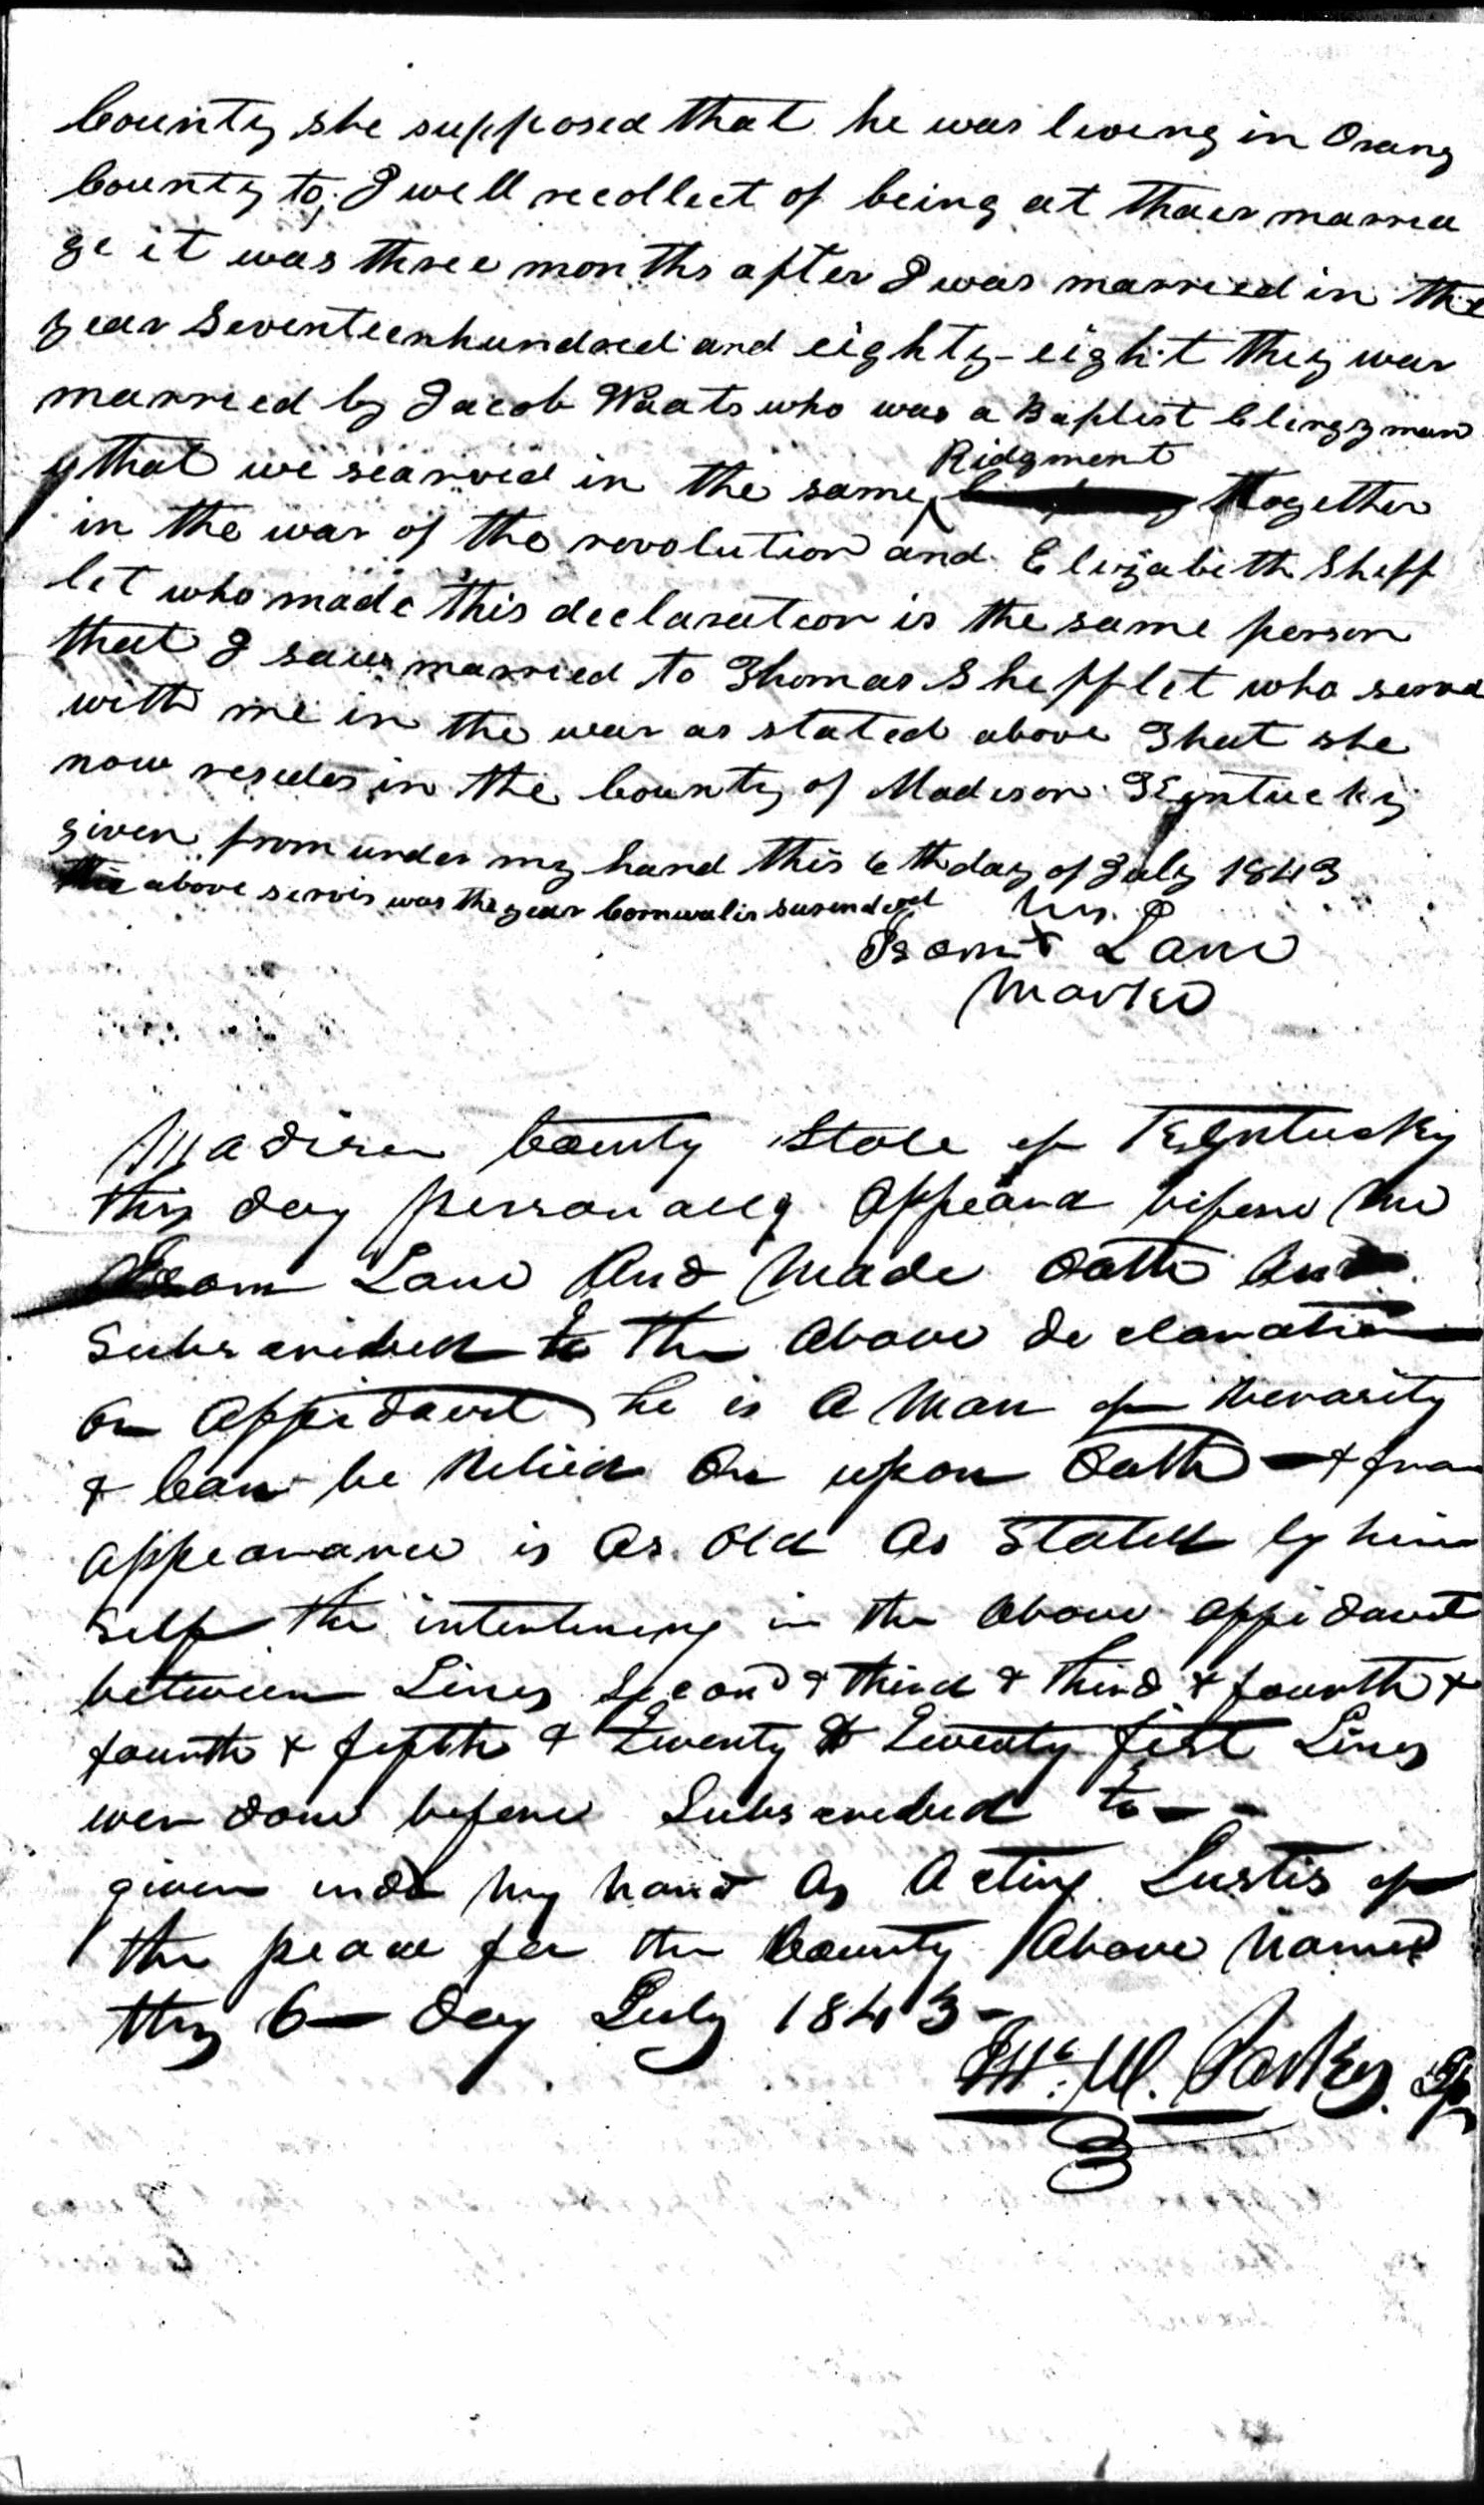 County she supposed that he was liveing in Orang
County to; I well recollect of being at thaer marrea
ge it was three months after I was married in the
year Seventeenhundred and eighty-eight they war
married by Jacob Waats who was a Baptist Clergyman
y that we searved in the same Ridgment together
in the war of the revolution and Elizabeth Sheff
let who made this declaration is the same person
that I saw married to Thomas Shefflet who served
with me in the war as stated above That she
now resides in the County of Madison Kentucky
given from under my hand this 6th day of July 1843
the above servis was the year Cornwalis surendered
his
Isom x Lane
Marke
Madison County State of Kentucky
this day personally appeard before me
Isom Lane And Made Oath And
Subscribed to the Above declaration
or Affidavit he is A Man of Verasity
& Can be Relied On upon Oath & from
appearance is As Old As Stated by him
self the interlineing in the Above affidavit
between Lines Second & third & third & fourth &
fourth & fifth & Twenty & Twenty first Lines
wer done before Subscribed to
given under My hand As Acting Justis of
the peace for the County Above Named
this 6 day July 1843